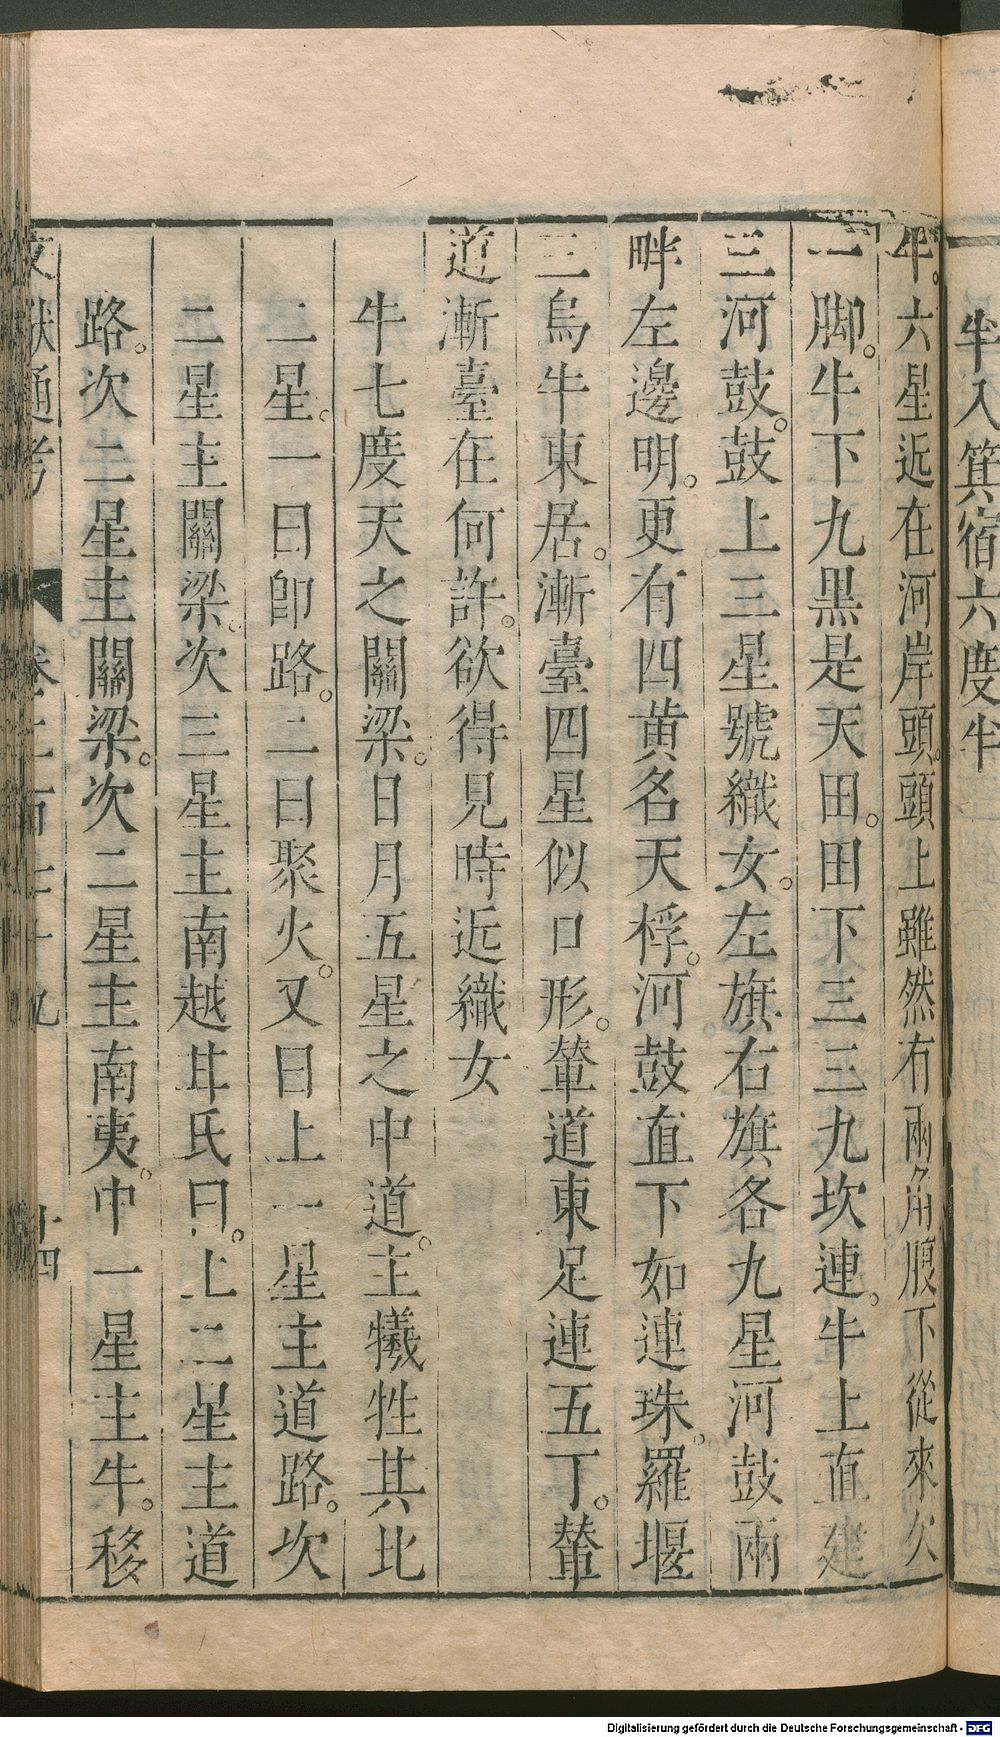 斗入箕宿六度半
牛。六星近在河岸頭。頭上雖然有兩角腹下從來欠
一脚。牛下九黑是天田。田下三三九坎連。牛上直建
三河鼓。鼓上三星號織女。左旗右旗各九星河鼓兩
畔左邊明。更有四黄名天桴。河鼓直下如連珠。羅堰
三烏牛東居。漸臺四星似口形。輦道東足連五丁。輦
道漸臺在何許。欲得見時近織女
牛七度天之關梁。日月五星之中道。主犧牲其北
二星。一曰卽路。二曰聚火。又曰上一星主道路。次
二星主關梁。次三星主南越甘氏曰。上二星主道
路。次二星主關梁。次二星主南夷。中一星主牛。移
文獻通考 卷二百七十九 十四
Digitalisierung gefördert durch die Deutsche Forschungsgemeinschaft - DFG